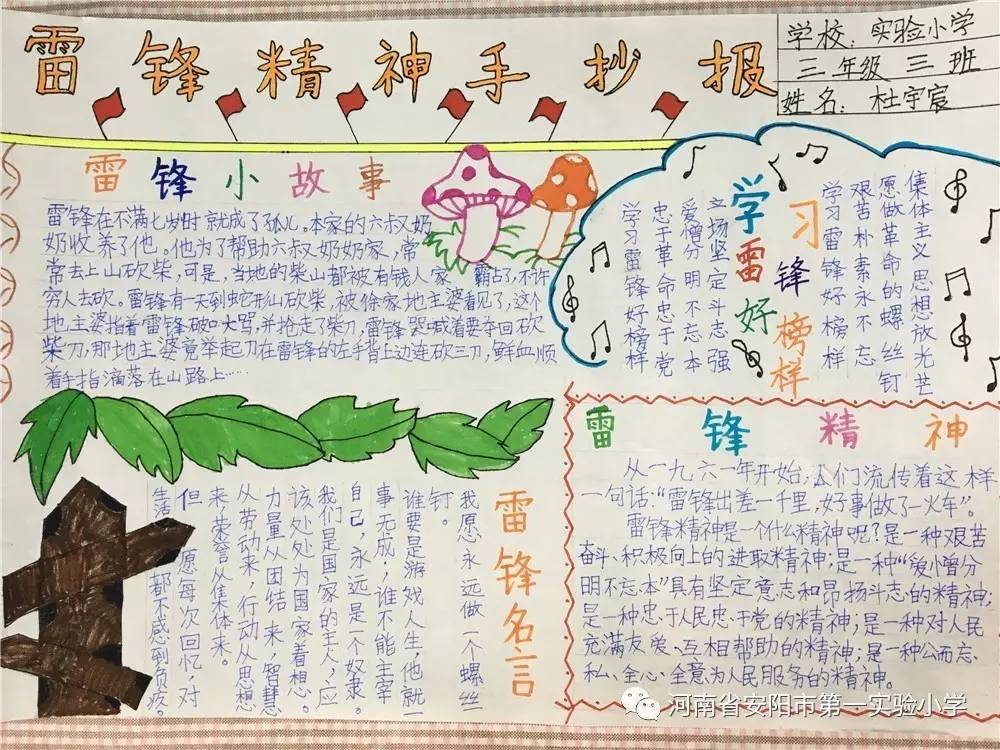 雷锋精神手抄报
学校：实验小学
三年级三班
姓名：杜宇宸
雷锋小故事
雷锋在不满七岁时就成了孤儿。本家的六叔奶
奶收养了他。他为了帮助六叔奶奶家，常
常去上山砍柴，可是，当地的柴山都被有钱人家霸占了，不许
穷人去砍。雷锋有一天到蛇形山砍柴，被徐家地主婆看见了，这个
地主婆指着雷锋破口大骂，并抢走了柴刀，雷锋哭喊着要夺回砍
柴刀，那地主婆竟举起刀在雷锋的左手背上边连砍三刀，鲜血顺
着手指滴落在山路上……
学习雷锋好榜样
集体主义思想放光芒
愿做革命的螺丝钉
艰苦朴素永不忘
学习雷锋好榜样
立场坚定斗志强
爱憎分明不忘本
忠于革命忠于党
学习雷锋好榜样
雷锋名言
我愿永远做一个螺丝
钉。
谁要是游戏人生，他就一
事无成；谁不能主宰
自己，永远是一个奴隶。
我们是国家的主人，应
该处处为国家着想。
力量从团结来，智慧
从劳动来，行动从思想
来，荣誉从集体来。
但愿每次回忆，对
生活都不感到负疚。
雷锋精神
从一九六一年开始，人们流传着这样
一句话：“雷锋出差一千里，好事做了一火车”。
雷锋精神是一个什么精神呢？是一种艰苦
奋斗、积极向上的进取精神；是一种“爱憎分
明不忘本”具有坚定意志和昂扬斗志的精神；
是一种忠于人民忠于党的精神；是一种对人民
充满友爱、互相帮助的精神；是一种公而忘
私、全心全意为人民服务的精神。
河南省安阳市第一实验小学